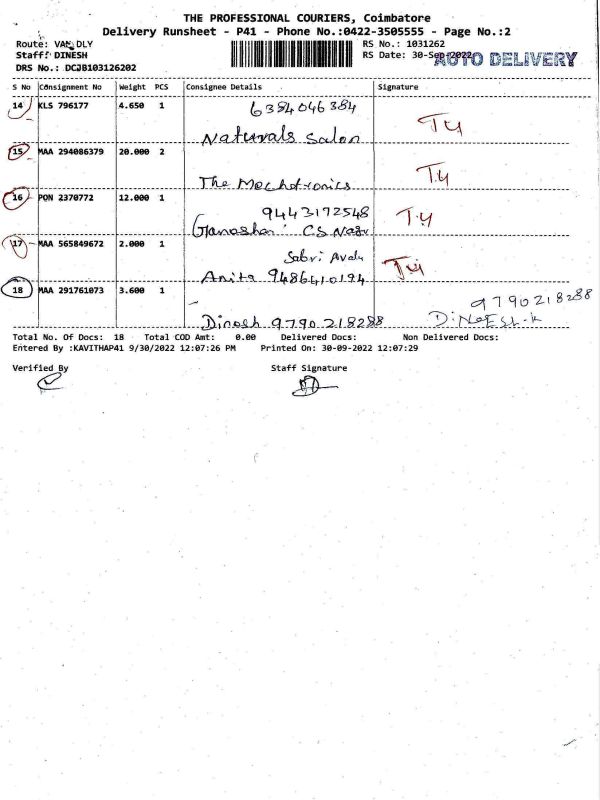 THE PROFESSIONAL COURIERS, Coimbatore
Delivery Runsheet - P41 - Phone No.:0422-3505555 - Page No.:2
Route: VAN DLY RS No.: 1031262
Staff: DINESH RS Date: 30-Sep-2022 AUTO DELIVERY
DRS No.: DCJB103126202
S No Consignment No Weight PCS Consignee Details Signature
14 KLS 796177 4.650 1 6384046384
Naturals Salon
15 MAA 294086379 20.000 2
The Mechatronics
16 PON 2370772 12.000 1 9443172548
CS
17 MAA 565849672 2.000 1 Sabri
Anita 9486410194
18 MAA 291761073 3.600 1 9790218288
Dinesh 9790218288 DiNeESh.k
Total No. Of Docs: 18 Total COD Amt: 0.00 Delivered Docs: Non Delivered Docs:
Entered By :KAVITHAP41 9/30/2022 12:07:26 PM Printed On: 30-09-2022 12:07:29
Verified By Staff Signature